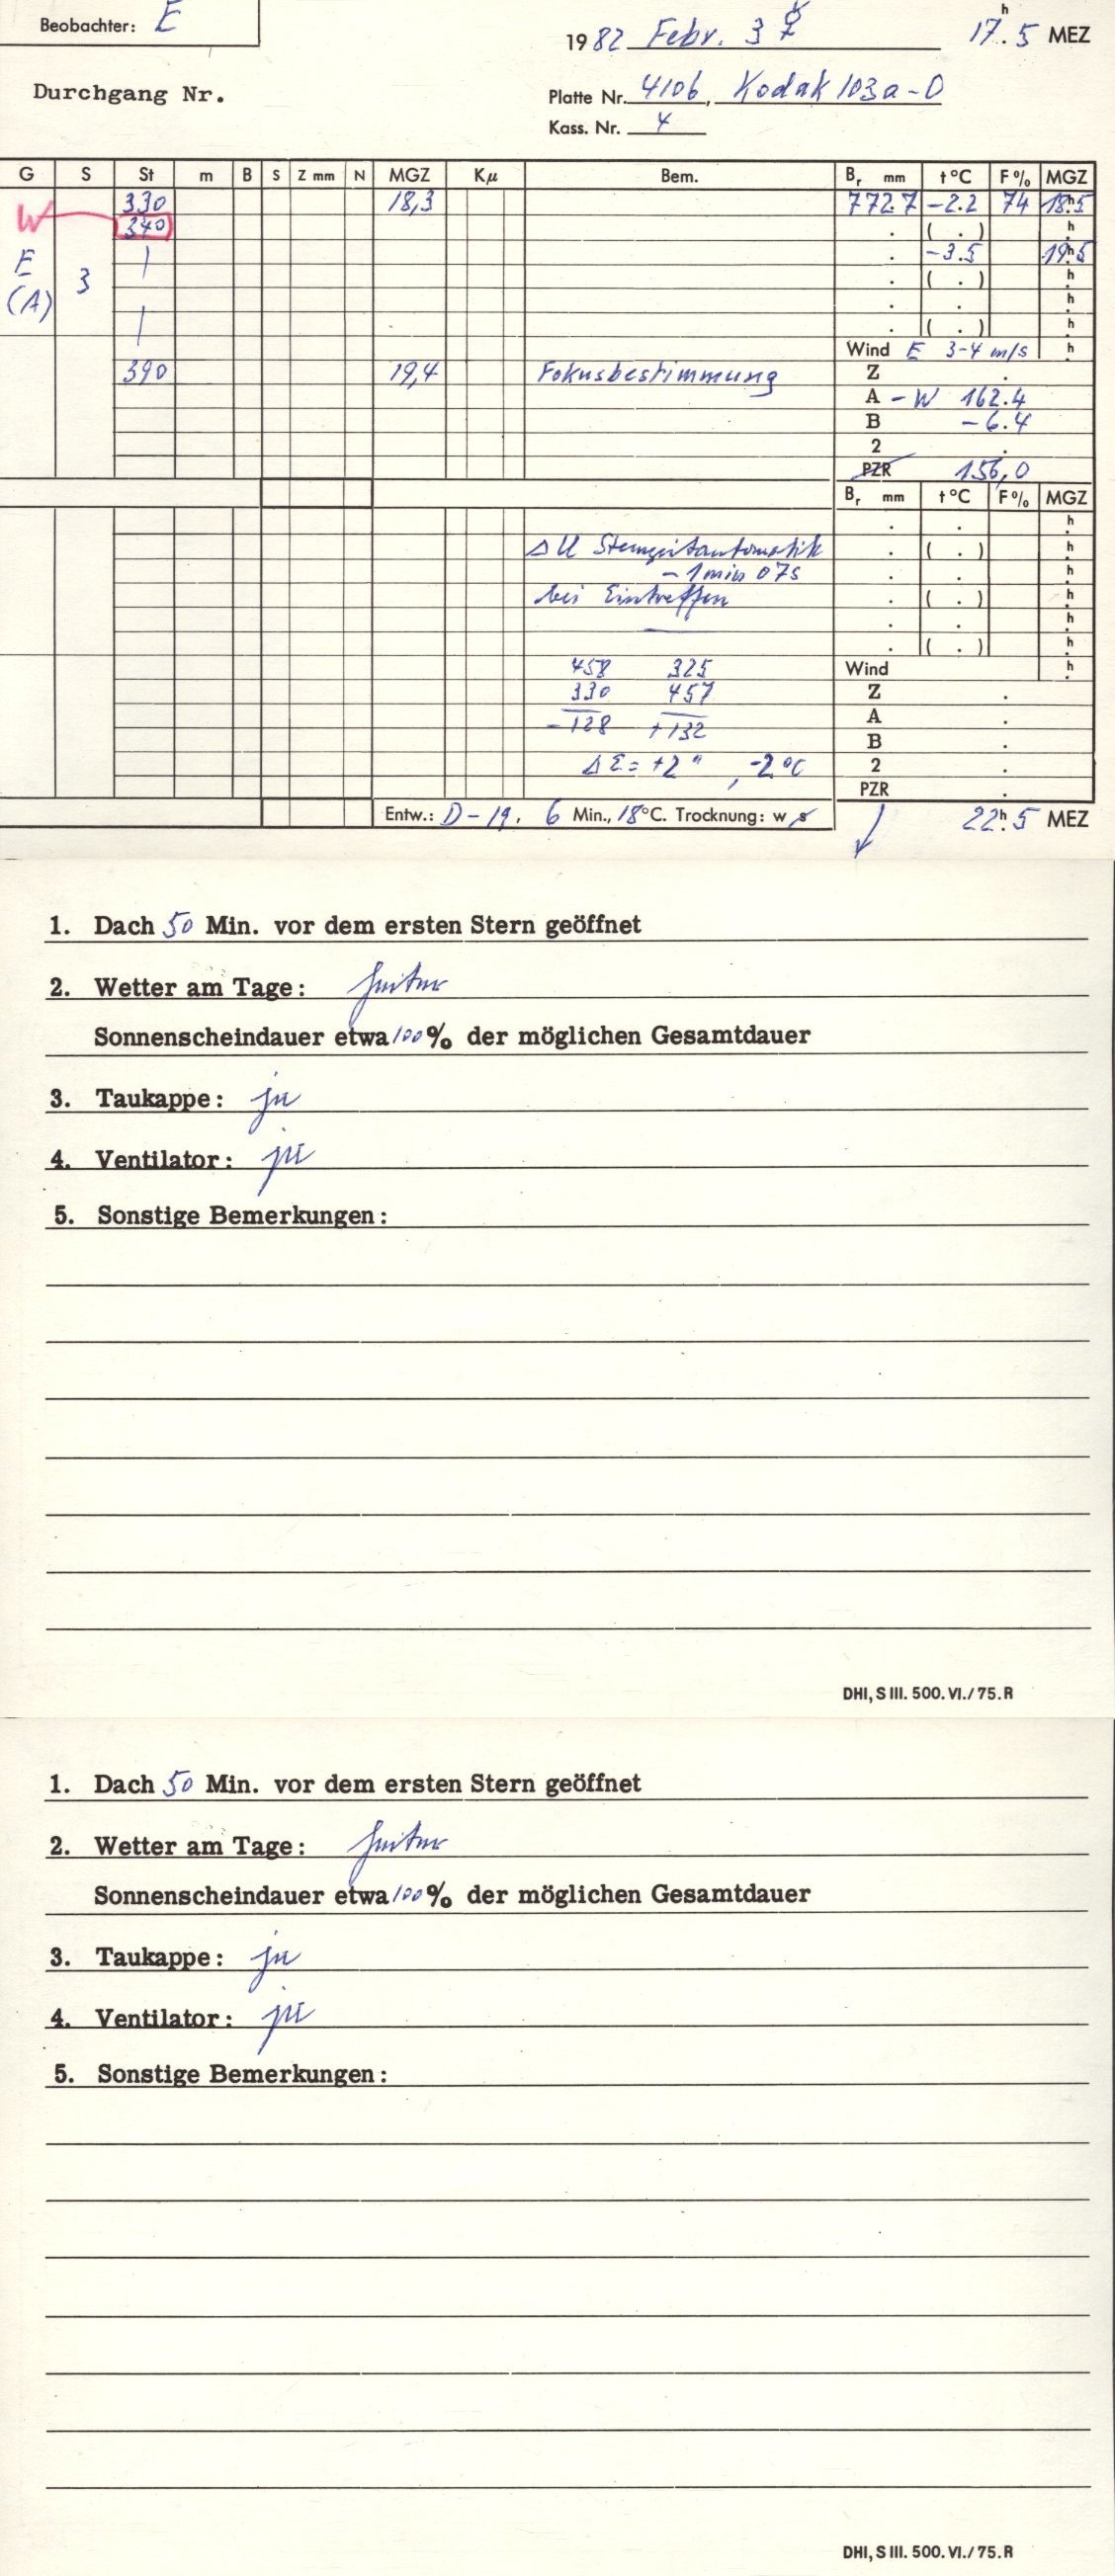 Beobachter: E
1982 Febr. 3 ☿ 17h.5 MEZ
Durchgang Nr.
Platte Nr. 4106, Kodak 103a-O
Kass. Nr. 4
G S St m B S Z mm N MGZ Kμ Bem. Br mm t°C F% MGZ
330 18,3 772.7 -2.2 74 18h.5
W 340 . ( . ) h
E | . -3.5 19h.5
(A) 3 . ( . ) h
. . h
| . ( . ) h
Wind E 3-4 m/s h
390 19,4 Fokusbestimmung Z .
A - W 162.4
B -6.4
2 .
PZR 156,0
Br mm t°C F% MGZ
. . h
Δ U Sternzeitautomatik . ( . ) h
- 1 min 07s . . h
bei Eintreffen . ( . ) h
. . h
. ( . ) h
458 325 Wind h
330 457 Z .
-128 +132 A .
B .
Δ Σ = +2 " , -2 °C 2 .
PZR .
Entw.: D-19, 6 Min., 18°C. Trocknung: w s 22h.5 MEZ
1. Dach 50 Min. vor dem ersten Stern geöffnet
2. Wetter am Tage: heiter
Sonnenscheindauer etwa 100% der möglichen Gesamtdauer
3. Taukappe: ja
4. Ventilator: ja
5. Sonstige Bemerkungen:
DHI, S III. 500. VI./75. R
1. Dach 50 Min. vor dem ersten Stern geöffnet
2. Wetter am Tage: heiter
Sonnenscheindauer etwa 100% der möglichen Gesamtdauer
3. Taukappe: ja
4. Ventilator: ja
5. Sonstige Bemerkungen:
DHI, S III. 500. VI./75. R